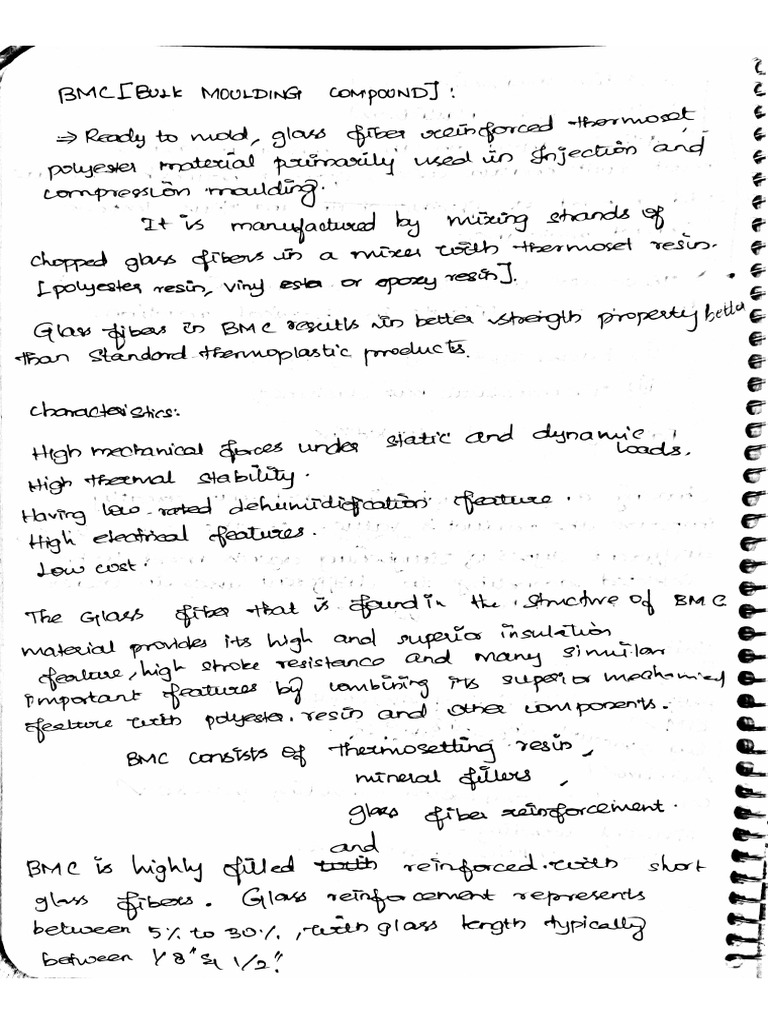 BMC [BULK MOULDING COMPOUND] :
⇒ Ready to mold, glass fiber reinforced thermoset
polyester material primarily used in Injection and
compression moulding.
It is manufactured by mixing strands of
chopped glass fibers in a mixer with thermoset resin.
[polyester resin, viny ester or epoxy resin].
Glass fibers in BMC results in better strength property better
than standard thermoplastic products.
characteristics:
High mechanical forces under static and dynamic
loads.
High thermal stability.
Having low rated dehumidification feature.
High electrical features.
Low cost.
The Glass fiber that is found in the structure of BMC
material provides its high and superior insulation
feature, high stroke resistance and many similar
important features by combining its superior mechanical
feature with polyester resin and other components.
BMC consists of thermosetting resin,
mineral fillers,
glass fiber reinforcement.
and
BMC is highly filled with reinforced with short
glass fibers. Glass reinforcement represents
between 5% to 30%, with glass length typically
between 1/8" & 1/2".